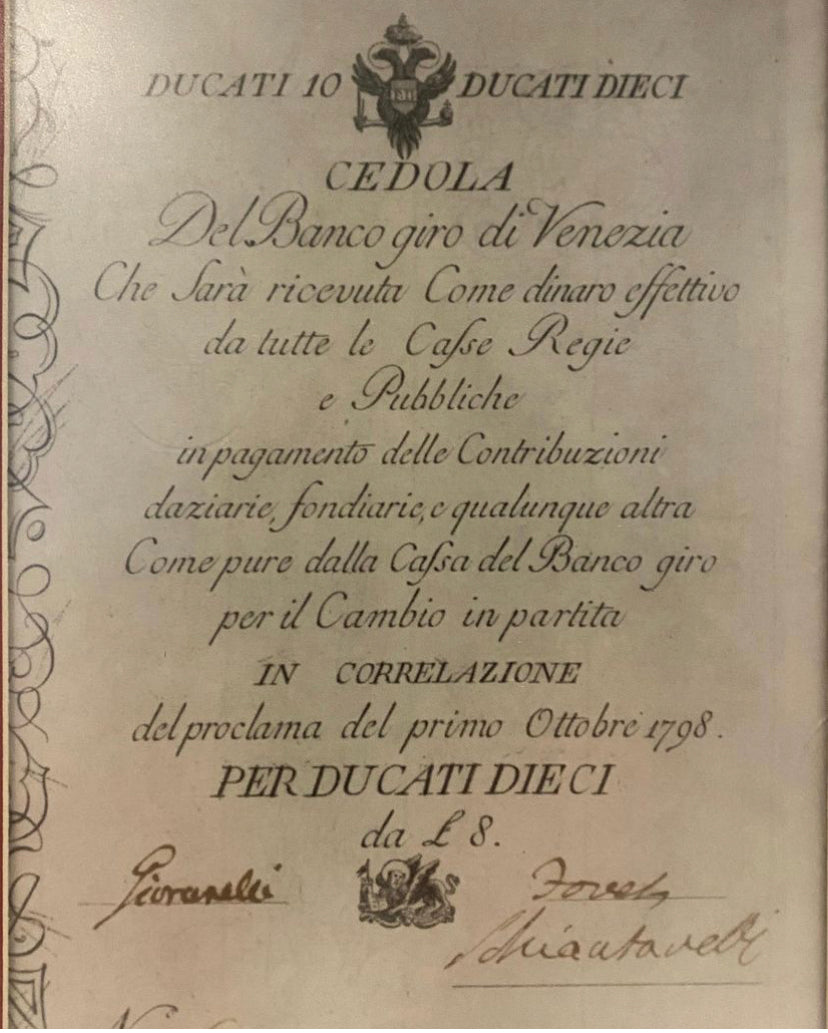 DUCATI 10 DUCATI DIECI
CEDOLA
Del Banco giro di Venezia
Che Sarà ricevuta Come dinaro effettivo
da tutte le Caſse Regie
e Pubbliche
in pagamento delle Contribuzioni
daziarie, fondiarie, e qualunque altra
Come pure dalla Caſsa del Banco giro
per il Cambio in partita
IN CORRELAZIONE
del proclama del primo Ottobre 1798.
PER DUCATI DIECI
da £ 8.
Giovanelli